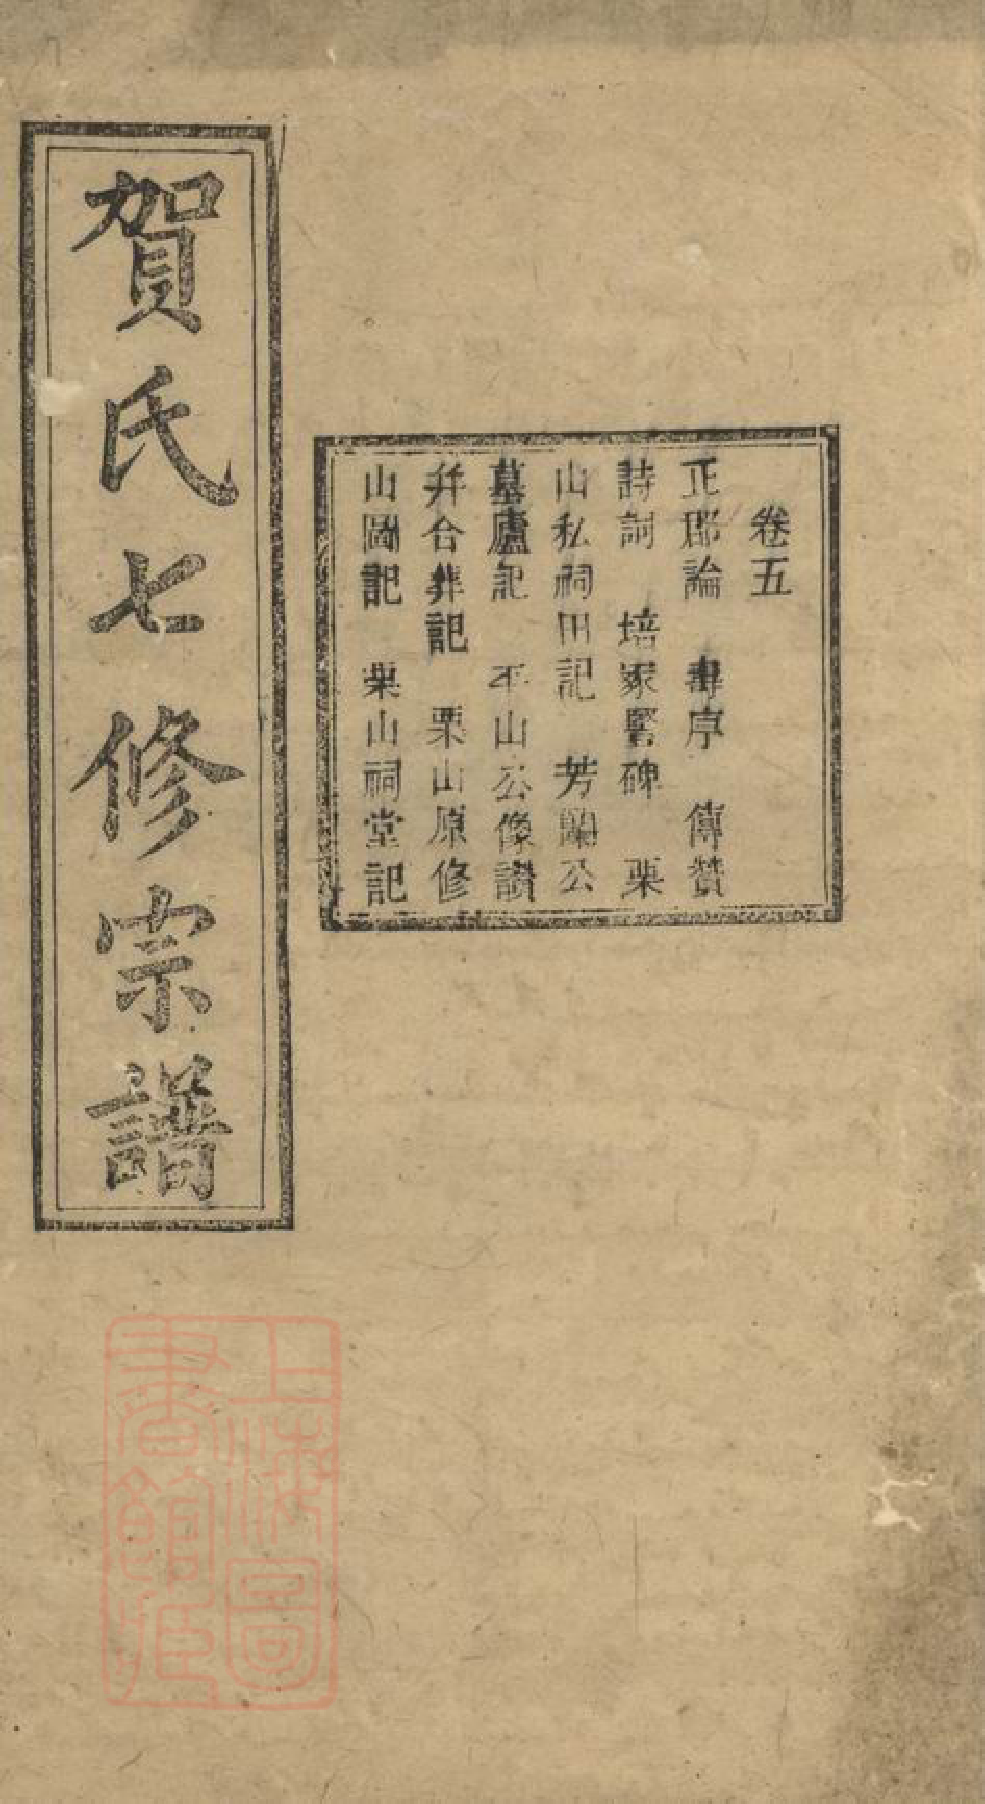 賀氏七修宗譜
卷五
正郡論 壽序 傳贊
詩詞 培冢豎碑 栗
山私祠田記 芳蘭公
墓廬記 平山公像讚
幷合葬記 栗山原修
山圖記 栗山祠堂記
上海圖
書館藏